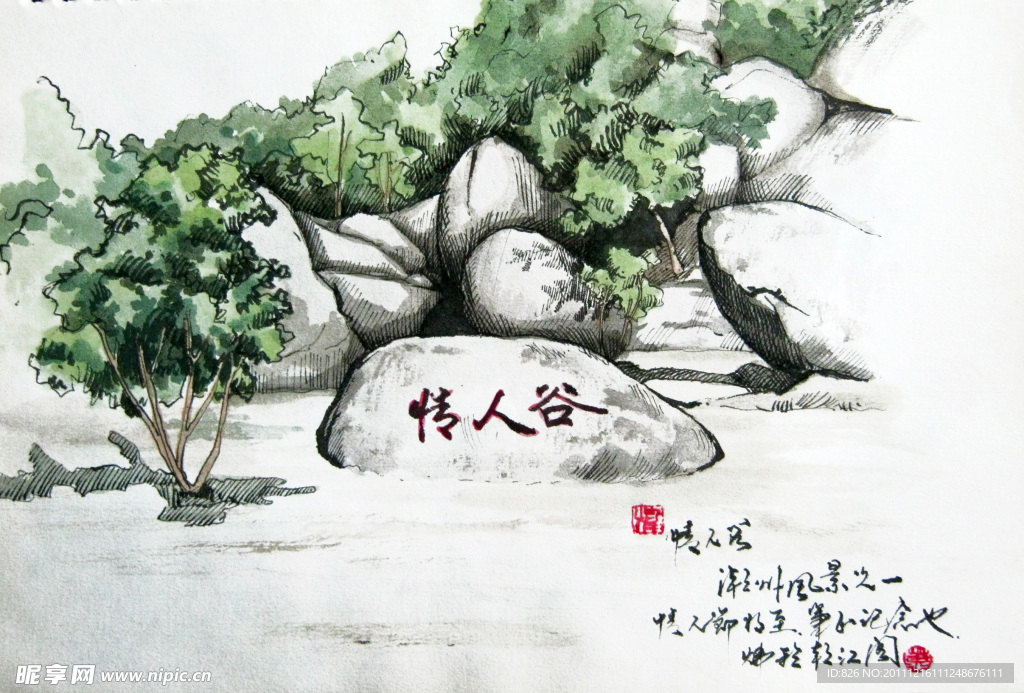 情人谷
情人谷
州風景之一
情人節将至、记念也
江阁
昵享网 www.nipic.cn
ID:826 NO:20111216111248676111